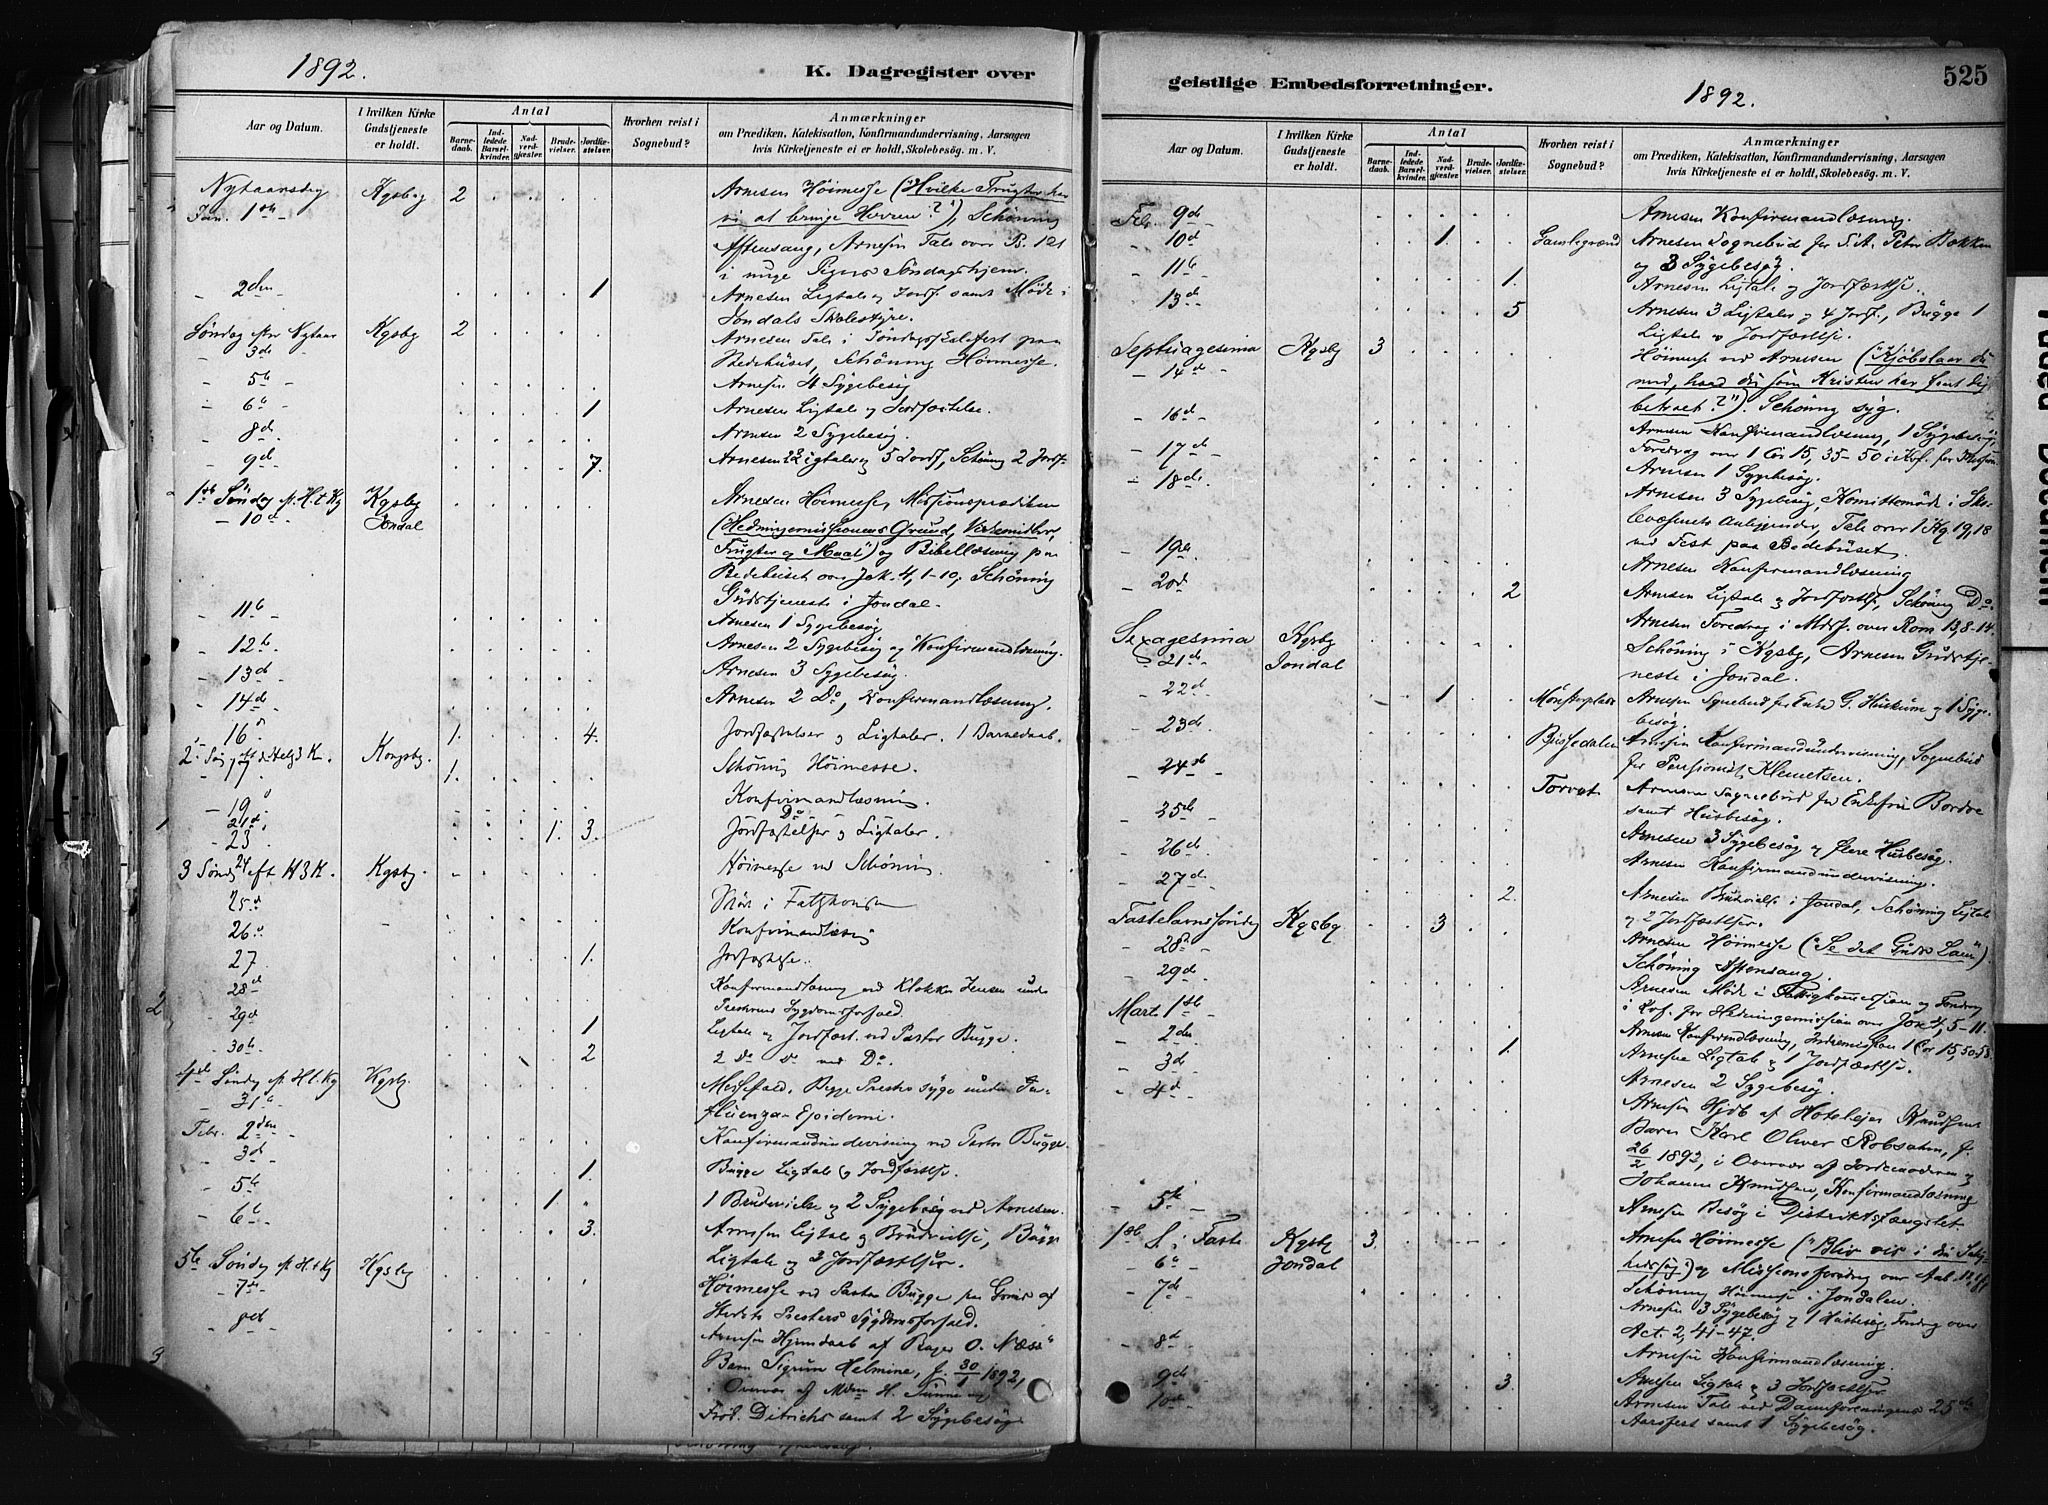 1892.
K. Dagregister over
Aar og Datum.
I hvilken Kirke Gudstjeneste er holdt.
Antal
Barnedaab.
Indledede Barselkvinder.
Nadverdgjester.
Brudevielser.
Jordfæstelser.
Hvorhen reist i Sognebud?
Anmærkninger
om Prædiken, Katekisation, Konfirmandundervisning, Aarsagen
hvis Kirketjeneste ei er holdt, Skolebesøg. m. V.
Nytaarsdag Kgsbg 2 Arnesen Høimesse ("Hvilke Frugter har
Jan. 1ste vi at bringe Herren?"), Schöning
Aftensang, Arnesen Tale over Ps. 121
i unge Pigers Søndagshjem.
2den 1 Arnesen Ligtale og Jordf. samt Møde i
Jondals Skolestyre.
Søndag efter Nytaar Kgsbg 2 Arnesen Tale i Søndagsskolefest paa
3de Bedehuset, Schöning Høimesse.
5te Arnesen 4 Sygebesøg
6te 1 Arnesen Ligtale og Jordfæstelse.
8de Arnesen 2 Sygebesøg.
9de 7. Arnesen 2 Ligtaler og 5 Jordf., Schöning 2 Jordf.
1ste Søndag p. H. t. Kg Kgsbg Arnesen Høimesse, Missionsprædiken
10de Jondal (Hedningemissionens Grund, Virkemidler,
Frugter og Maal") og Bibellæsning paa
Bedehuset over Jak. 4, 1-10, Schöning
Gudstjeneste i Jondal.
11te Arnesen 1 Sygebesøg
12te Arnesen 2 Sygebesøg og Konfirmandlæsning.
13de Arnesen 3 Sygebesøg.
14de Arnesen 2 Do, Konfirmandlæsning.
16 1. 4. Jordfæstelser og Ligtaler. 1 Barnedaab.
2. Søn 17 Helg 3 K. Kongsbg. 1. Schöning Høimesse.
19 Konfirmandlæsning.
21d. Do
23 1. 3. Jordfæstelser og Ligtaler.
3 Sønd 24 eft H 3 K. Kgsbg. Høimesse ved Schöning
25 Møde i
26 Konfirmandlæsnig
27 1. Jordfæstelse.
28 Konfirmandlæsning ved Klokker Jensen under
29de Presternes Sygdomsforfald.
1 Ligtale og Jordfæst. ved Pastor Bugge.
30te 2 2 Do Do ved Do.
4de Søndag p. H. t. Kg Kgsbg. Messefald. Begge Prester syge under In-
31te fluenza-Epidemi.
Febr. 2den Konfirmandundervisning ved Pastor Bugge.
3d 1. Bugge Ligtale og Jordfæstelse.
5te 1 1 Brudevielse og 2 Sygebesøg ved Arnesen.
6te 3. Arnesen Ligtale og Brudevielse, Bugge
Ligtale og 3 Jordfæstelser.
5te Søndag p. H. t. Kg Kgsbg Høimesse ved Pastor Bugge paa Grund af
7de Prestens Sygdomsforfald.
8de Arnesen Hjemdaab af Bager O. Næss'
Barn Sigrun Helmine, f. 30/1 1892,
i Overvær af Mdm H. og
Frøk. Ditrichs samt 2 Sygebesøg
geistlige Embedsforretninger.
1892.
525
Aar og Datum.
I hvilken Kirke Gudstjeneste er holdt.
Antal
Barnedaab.
Indledede Barselkvinder.
Nadverdgjester.
Brudevielser.
Jordfæstelser.
Hvorhen reist i Sognebud?
Anmærkninger
om Prædiken, Katekisation, Konfirmandundervisning, Aarsagen
hvis Kirketjeneste ei er holdt, Skolebesøg. m. V.
Feb. 9de Arnesen Konfirmandlæsning.
10d 1. Gamlegrænd Arnesen Sognebud for Peter Bakken
og 3 Sygebesøg.
11te 1. Arnesen Ligtale og Jordfæstelse.
13d 5 Arnesen 3 Ligtaler og 4 Jordf., Bugge 1
Ligtale og Jordfæstelse.
Septuagesima Kgsbg 3 Høimesse ved Arnesen ("Kjøbslaar du
14d med, hvad du som Kristen har faaet dig
betroet?"). Schöning syg.
16d Arnesen Konfirmandlæsning, 1 Sygebesøg,
17de Foredrag over 1 Cor 15, 35-50 i Kof. for Mission.
Arnesen 1 Sygebesøg.
18de Arnesen 3 Sygebesøg, Komitemøde i Sko-
levæsenets Anliggender, Tale over 1 Kg 19,18
ved Fest paa Bedehuset.
19de Arnesen Konfirmandlæsning
20d 2 Arnesen Ligtale og Jordfæstelse, Schöning Do.
Arnesen Foredrag i Missf. over Rom 13,8-14.
Sexagesima Kgsbg Schöning i Kgsbg, Arnesen Gudstje-
21de Jondal neste i Jondal.
22d 1 Arnesen Sognebud for Enke G. Huskum og 1 Syge-
besøg.
23de Bussedalen Arnesen Konfirmandundervisning, Sognebud
24de for Pensionist Klemetsen.
Torvet Arnesen Sognebud for Enkefru Bordoe
25te samt Husbesøg.
Arnesen 3 Sygebesøg og flere Husbesøg.
26de Arnesen Konfirmandundervisning.
27de 2. Arnesen Brudevielse i Jondal, Schöning Ligtale
og 2 Jordfæstelser.
Fastelavnssøndag Kgsbg 3 Arnesen Høimesse ("Se det Guds Lam").
28de Schöning Aftensang.
29de Arnesen Møde i Fattigkommission og Foredrag
i Kof. for Hedningemission over Jak 4, 5-11.
Mart. 1ste Arnesen Konfirmandlæsning, Indremission 1 Cor 15, 50-58.
2den 1. Arnesen Ligtale og 1 Jordfæstelse.
3d Arnesen 2 Sygebesøg.
4d Arnesen Hjdb af Hoteleier Knudsens
Barn Karl Oliver Robsahm, f.
26/2 1892, i Overvær af Jordemoderen og
Johanne Knudsen, Konfirmandlæsning
5te Arnesen Besøg i Distriktsfængslet.
1ste S. i Faste Kgsbg 3. Arnesen Høimesse ("Bliv vis i din Salig-
6te Jondal hedssag") og Missionsforedrag over
7de Schöning Høimesse i Jondalen.
Arnesen 3 Sygebesøg og 1 Husbesøg, Foredrag over
8d Act. 2, 41-47.
Arnesen Konfirmandlæsning.
9de 3. Arnesen Ligtale og 3 Jordfæstelser.
10de Arnesen Tale ved Dameforeningens 25de
Aarsfest samt 1 Sygebesøg.